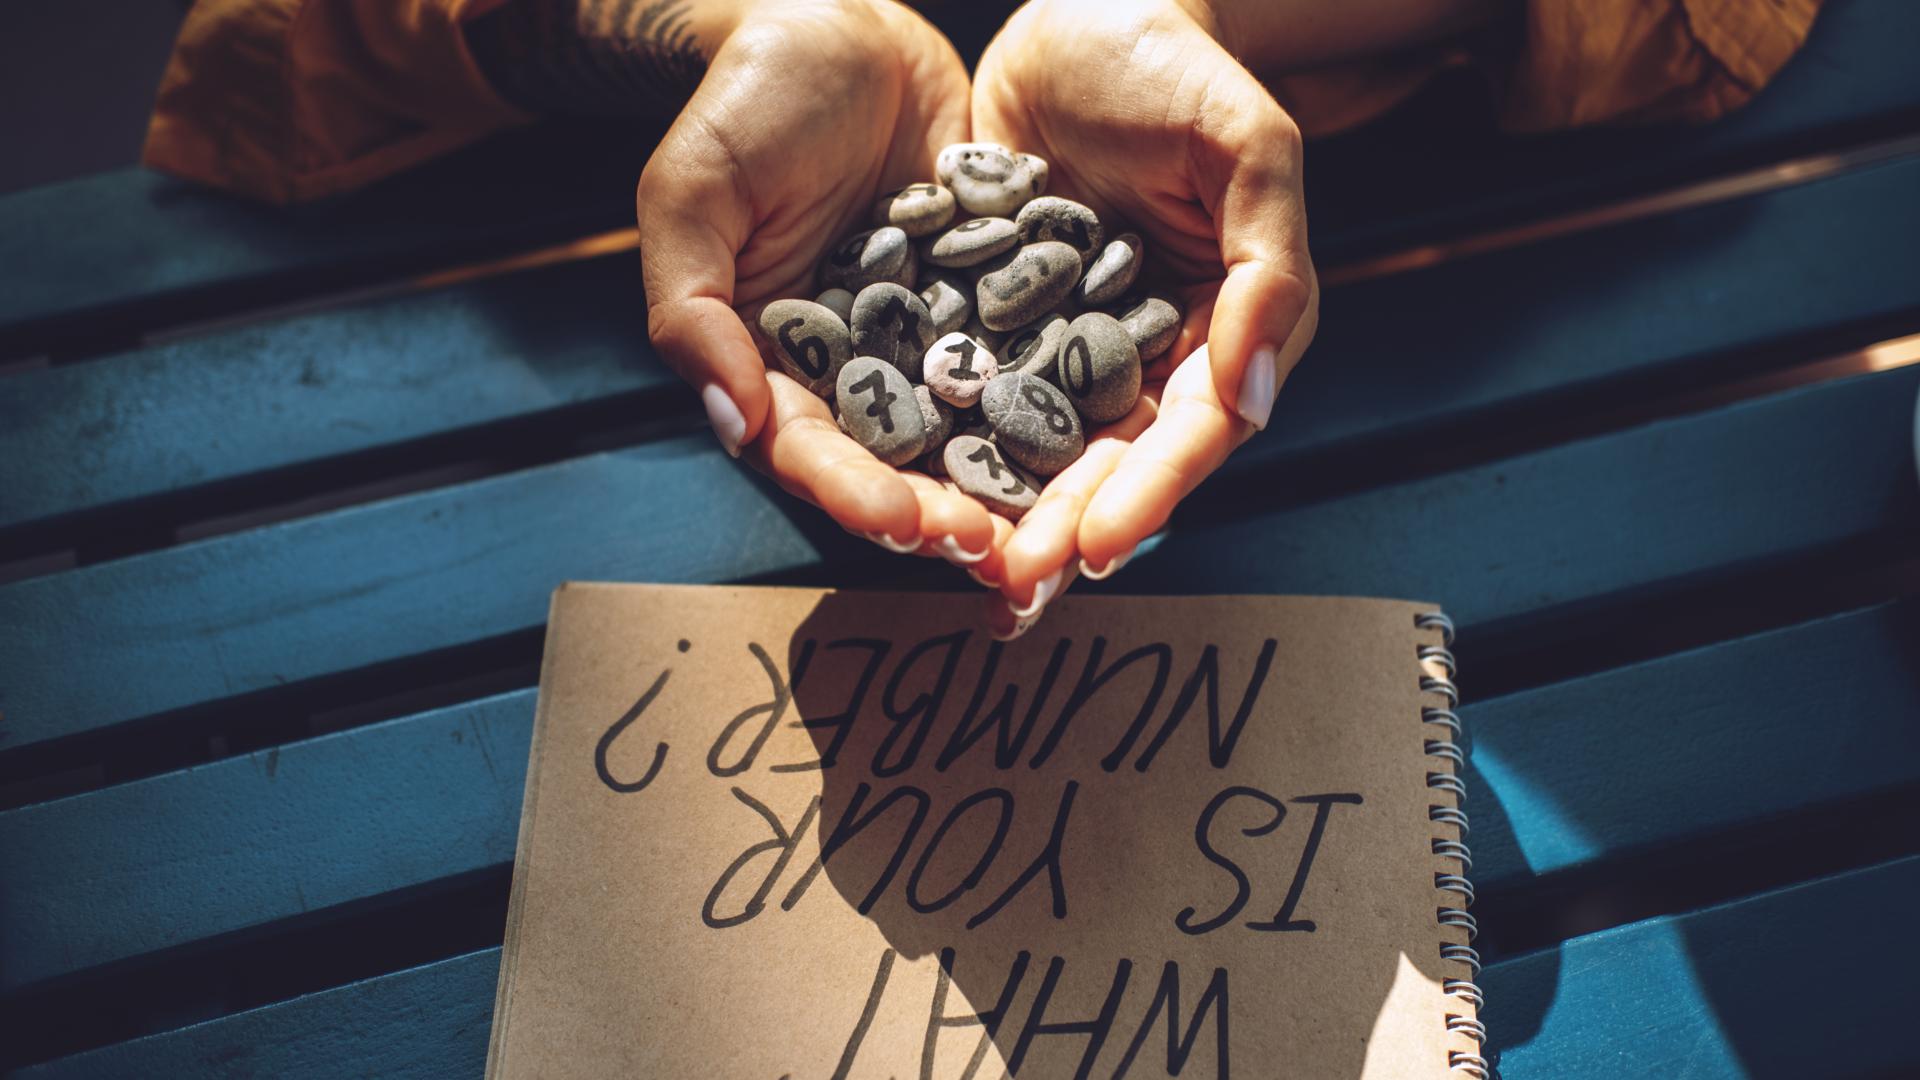 WHAT
IS YOUR
NUMBER?
6
7
1
8
0
3